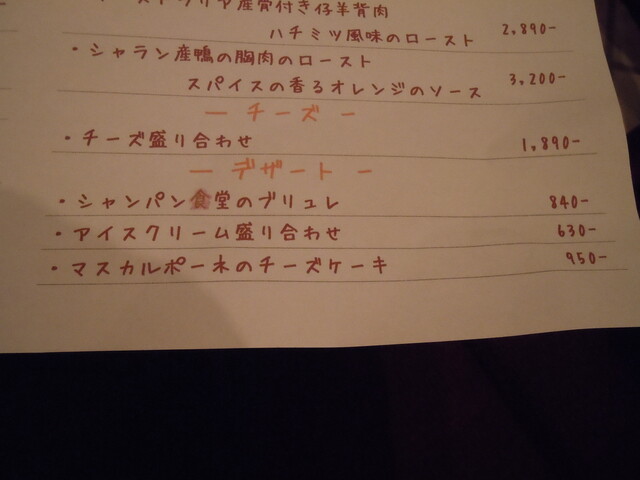 産骨付き仔羊背肉
ハチミツ風味のロースト 2,890-
・シャラン産鴨の胸肉のロースト
スパイスの香るオレンジのソース 3,200-
— チーズ —
・チーズ盛り合わせ 1,890-
— デザート —
・シャンパン食堂のブリュレ 840-
・アイスクリーム盛り合わせ 630-
・マスカルポーネのチーズケーキ 950-